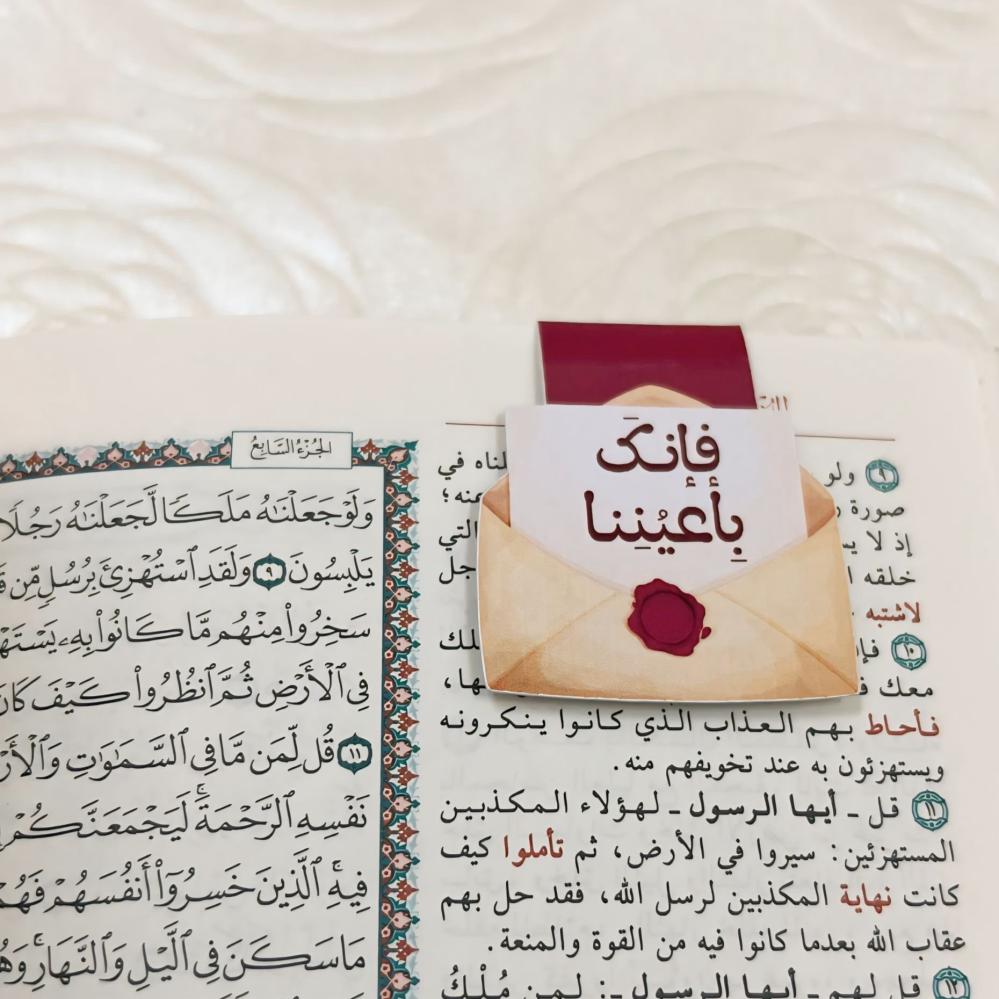 فإنكَ
بِأعيُنِنا
الجُزْءُ السَّابِعُ
وَلَوْ جَعَلْنَٰهُ مَلَكًا لَّجَعَلْنَٰهُ رَجُلًا
يَلْبِسُونَ ٩ وَلَقَدِ ٱسْتُهْزِئَ بِرُسُلٍ مِّن
سَخِرُوا۟ مِنْهُم مَّا كَانُوا۟ بِهِۦ
فِي ٱلْأَرْضِ ثُمَّ ٱنظُرُوا۟ كَيْفَ
١١ قُل لِّمَن مَّا فِي ٱلسَّمَٰوَٰتِ
نَفْسِهِ ٱلرَّحْمَةَ ۚ لَيَجْمَعَنَّكُمْ
فِيهِ ۚ ٱلَّذِينَ خَسِرُوٓا۟ أَنفُسَهُمْ
مَا سَكَنَ فِي ٱلَّيْلِ وَٱلنَّهَارِ ۚ
٩ ولو
صورة
إذ لا
التي
خلقه
لاشتبه
١٠
معك
فأحاط بهم العذاب الذي كانوا ينكرونه
ويستهزئون به عند تخويفهم منه.
١١ قل ـ أيها الرسول ـ لهؤلاء المكذبين
المستهزئين: سيروا في الأرض، ثم تأملوا كيف
كانت نهاية المكذبين لرسل الله، فقد حل بهم
عقاب الله بعدما كانوا فيه من القوة والمنعة.
١٢ قل لهم ـ أيها الرسول ـ: لمن مُلْكُ